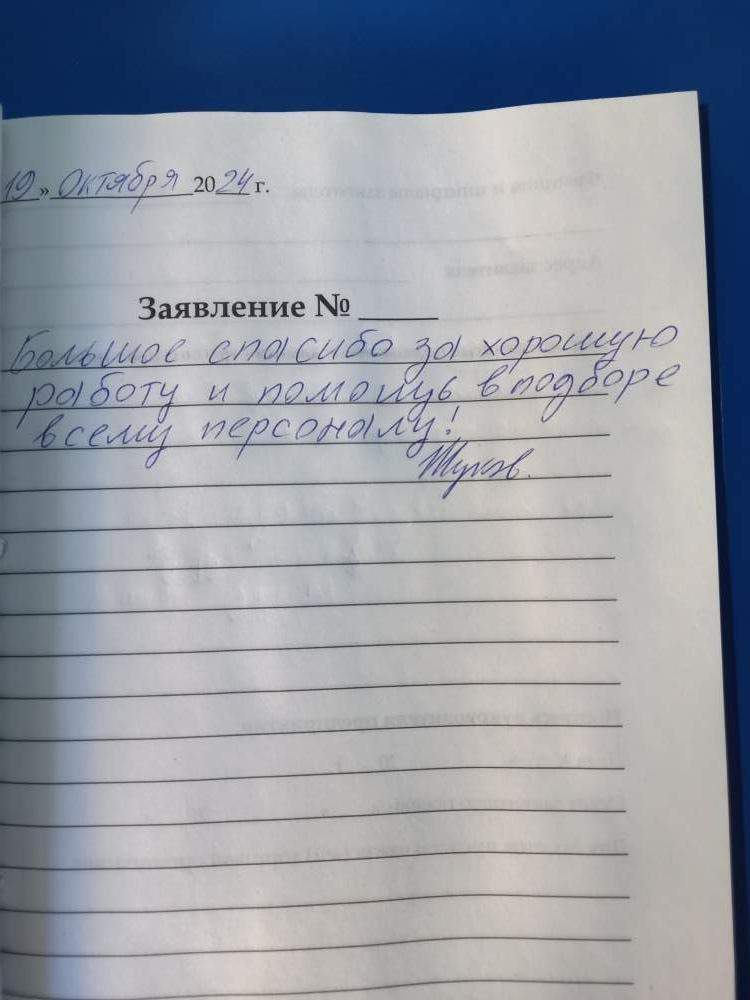 19» Октября 2024 г.
Заявление №
Большое спасибо за хорошую
работу и помощь в подборе
всему персоналу!
Жуков.